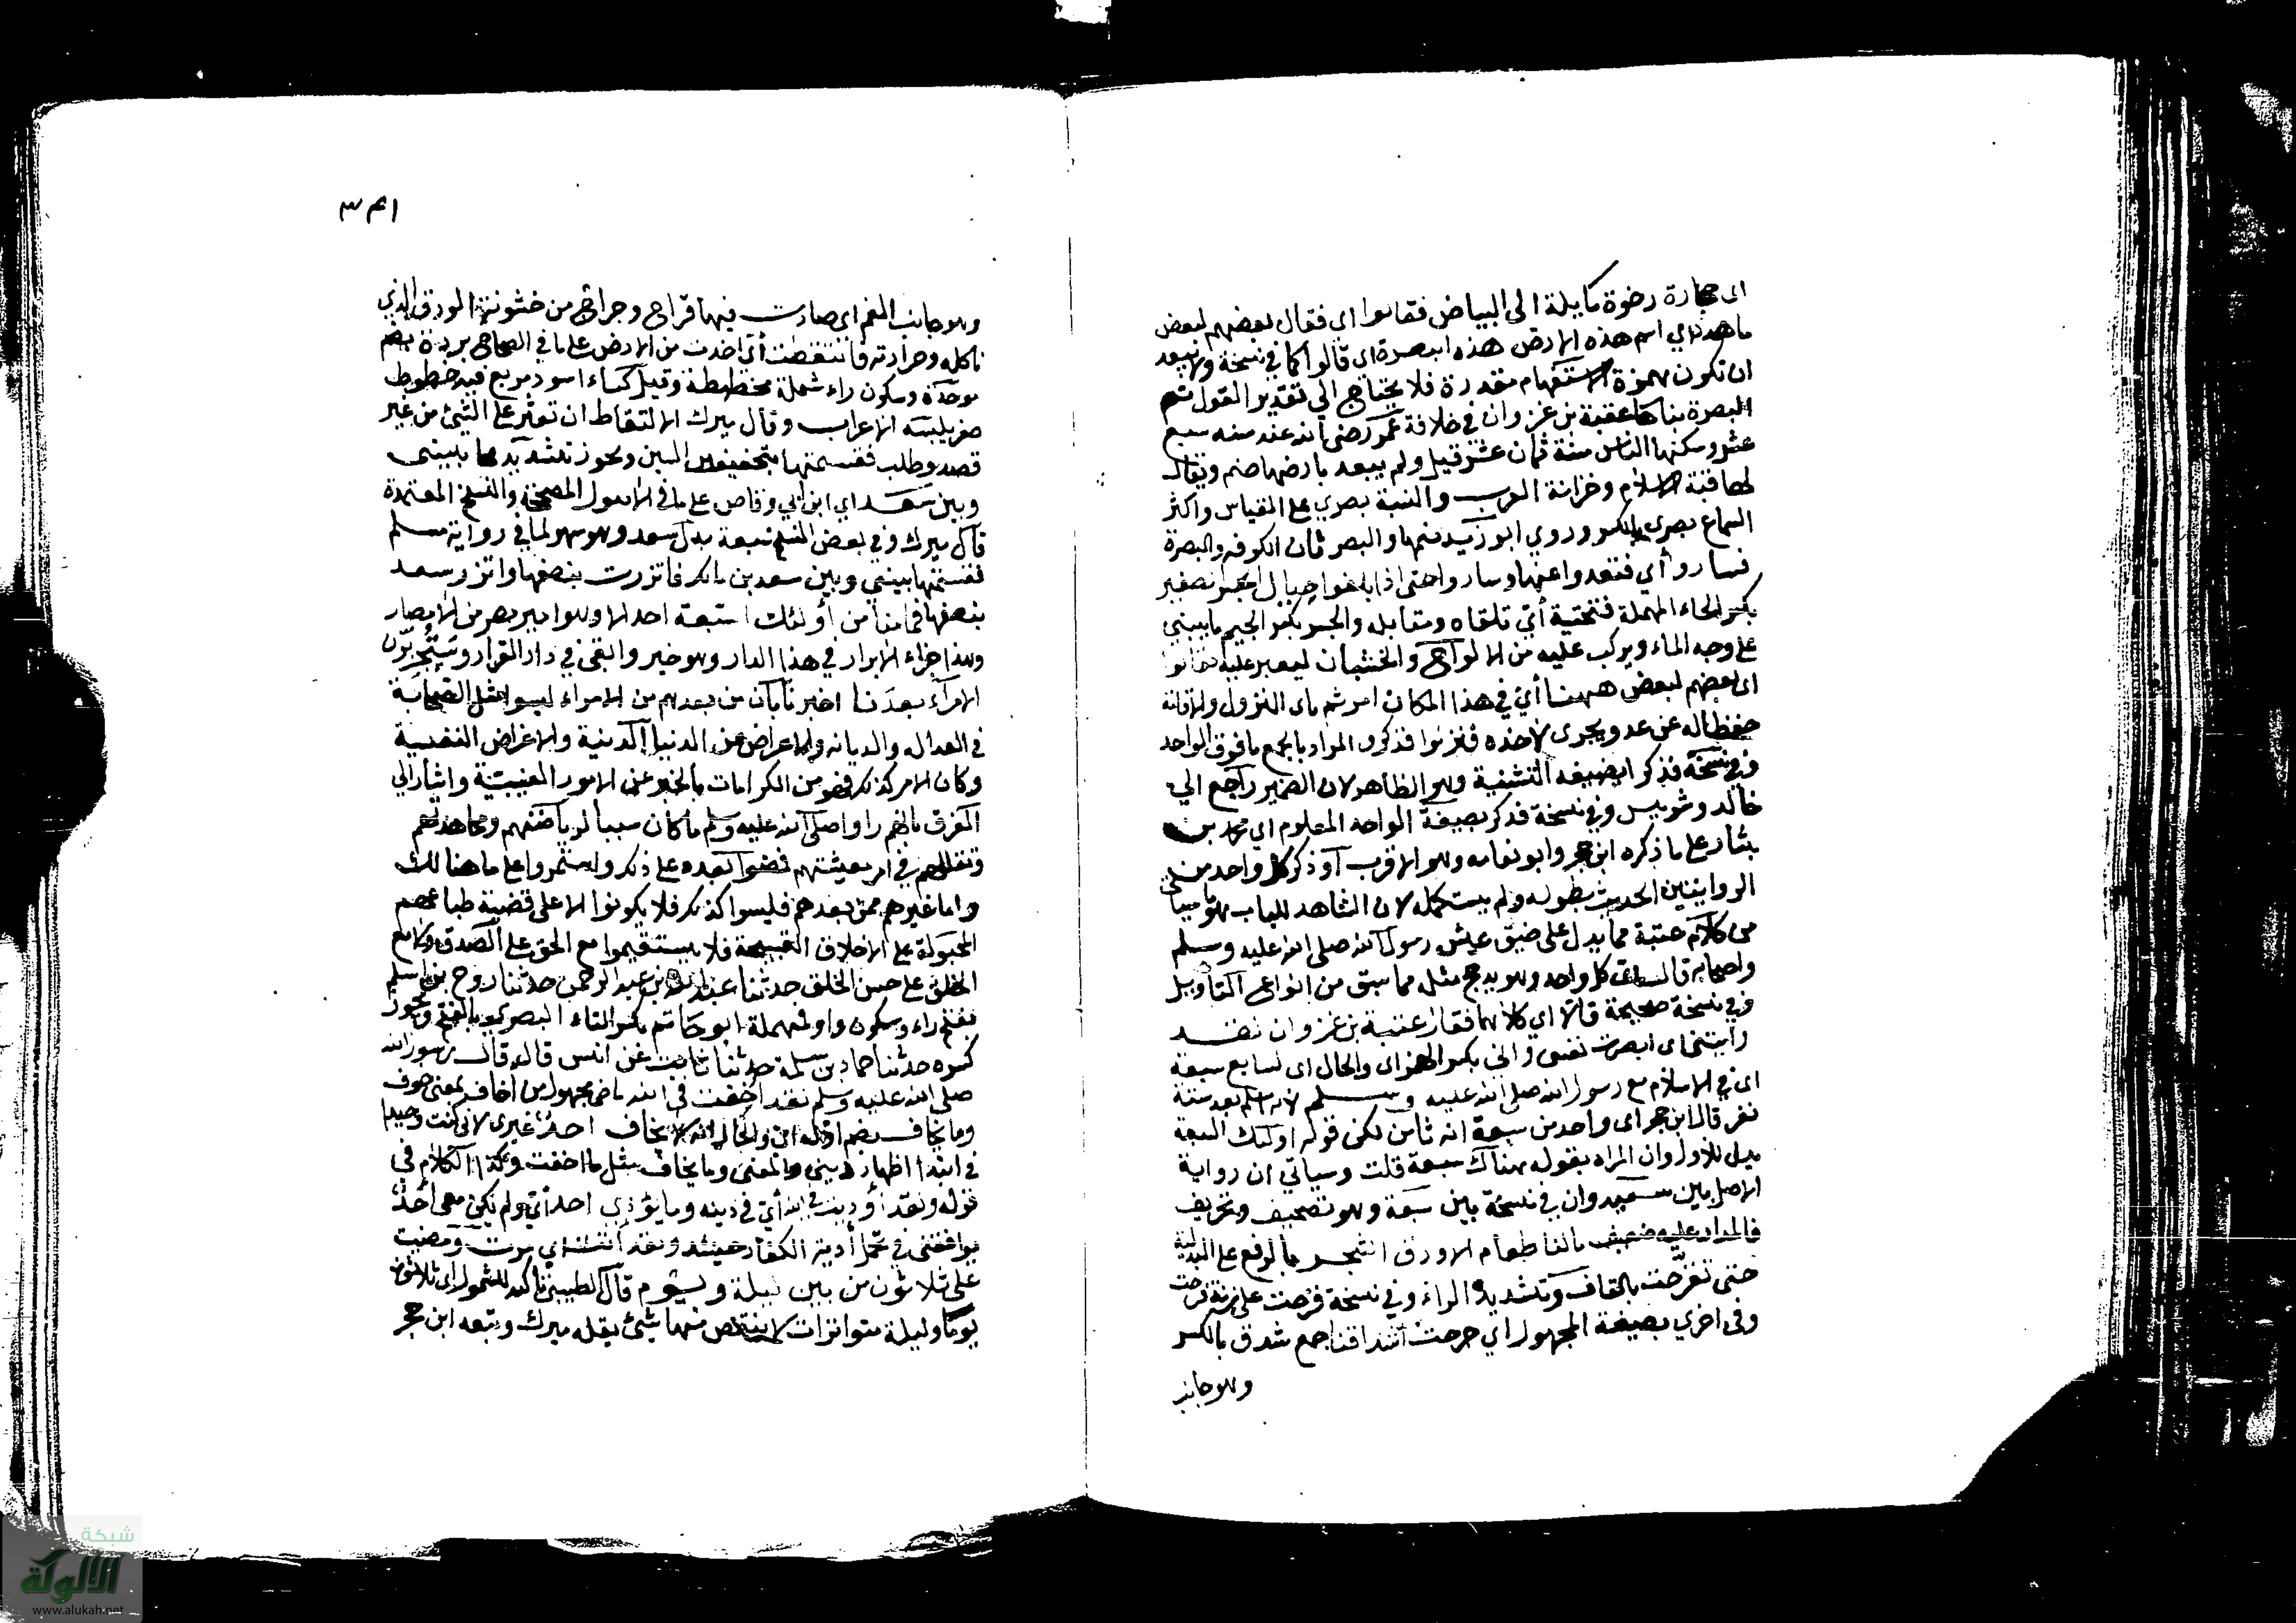 اى حجارة رخوة مايلة الى البياض فقالوا اى فقال بعضهم لبعض
ما هذه اي اسم هذه الارض هذه البصرة اى قالوا كما في نسخة ولا يبعد
ان تكون همزة الاستفهام مقدرة فلا يحتاج الي تقدير القول ثم
البصرة بناها عتبة بن غزوان في خلافة عمر رضى الله عنه سنه سبع
عشر وسكنها الناس سنة ثمان عشر قيل ولم يعبد بارضها صنم ويقال
لها قبة الاسلام وخزانة العرب والنسبة بصري على القياس واكثر
السماع بصري بالكسر وروي ابو زيد ضمها والبصرتان الكوفه والبصرة
فساروا أي فتعدوا عنها وساروا حتى اذا بلغوا حيال الجسر الصغير
بكسر الحاء المهملة فتحتية أي تلقاه ومقابله والجسر بكسر الجيم ما يبنى
على وجه الماء ويركب عليه من الالواح والخشبان ليعبر عليه فقالوا
اى بعضهم لبعض ههنا أي في هذا المكان امرتم اى النزول والاقامة
حفظا له عن عدو يجرى لاخذه فنزلوا فذكروا المراد بالجمع ما فوق الواحد
وفي نسخة فذكرا بصيغه التثنية وهو الظاهر لان الضمير راجع الي
خالد وشويس وفي نسخة فذكر بصيغة الواحد المعلوم اي محمد بن
بشار على ما ذكره ابن حجر وابو نعامه وهو الاقرب أو ذكر كل واحد من
الروايتين الحديث بطوله ولم يستكمله لان الشاهد للباب هو ما سيأتي
من كلام عتبة مما يدل على ضيق عيش رسول الله صلى الله عليه وسلم
واصحابه قال اى كل واحد وهو يدحج مثله مما سبق من انواع التأويل
وفي نسخة صحيحة قالا اي كلاهما فقال عتبة بن غزوان لقد
رأيتنى اى ابصرت نفسى وانى بكسر الهمز اى والحال اى لسابع سبعة
اى في الاسلام مع رسول الله صلى الله عليه وسلم لانه اسلم بعد ستة
نفر قال ابن حجر اى واحد من سبعة انه ثامن لكن قوله اولئك السبعة
يدل للاول وان المراد بقوله هناك سبعة قلت وسياتي ان رواية
الاصل بين سعد وان في نسخة بين سبعة وهو تصحيف وتحريف
فالمدار عليه ضعيف مالنا طعام الا ورق الشجر بالرفع على البدلية
حتى تقرحت بالقاف وتشديد الراء وفي نسخة قرحت على زنة فرحت
وفى اخري بصيغة المجهول اي جرحت أشداقنا جمع شدق بالكسر
وهو جانب
٣٤١
وهو جانب الفم اى صارت فيها قراح وجراح من خشونة الورق الذي
ناكله وحرارته فالتقطت أي اخذت من الارض على ما في الصحاح بردة بضم
موحدة وسكون راء شملة مخططة وقيل كساء اسود مربع فيه خطوط
صغر يلبسه الاعراب وقال ميرك الالتقاط ان تعثر على الشئ من غير
قصد وطلب فقسمتها بتخفيف السين ويجوز تشديدها بينى
وبين سعد اي ابن ابي وقاص على ما في الاصول المصححة والنسخ المعتمدة
قال ميرك وفي بعض النسخ سبعة بدل سعد وهو سهو لما في رواية مسلم
فقسمتها بيني وبين سعد بن مالك فاتزرت بنصفها واتزر سعد
بنصفها فما منا من أولئك السبعة احد الا وهو امير مصر من الامصار
وهذا جزاء الابرار في هذا الدار وهو خير وابقى في دار القرار وستجربون
الامرآء بعدنا اخبر نا بان من بعدهم من الامراء ليسوا مثل الصحابة
في العداله والديانه والاعراض عن الدنيا الدنية والاغراض النفسية
وكان الامر كذلك فهو من الكرامات بالخبر عن الامور الغيبية واشار الي
الفرق بانهم راوا صلى الله عليه وسلم ما كان سببا لرياضتهم ومجاهدتهم
وتقللهم في امر معيشتهم فمضوا بعده على ذلك واستمروا على ما هنالك
واما غيرهم ممن بعدهم فليسوا كذلك فلا يكونوا الا على قضية طباعهم
المجبولة على الاخلاق القبيحة فلا يستقيموا مع الحق على الصدق ولا مع
الخلق على حسن الخلق حدثنا عبد الله بن عبد الرحمن حدثنا روح بن اسلم
بفتح راء وسكون واو فمهملة ابو حاتم بكسر التاء البصري بالفتح ويجوز
كسره حدثنا حماد بن سلمة حدثنا ثابت عن انس قال قال رسول الله
صلى الله عليه وسلم لقد اخفت في الله ماضى مجهول من أخاف بمعنى خوف
وما يخاف بضم اوله اى والحال انه لا يخاف احد غيري لانى كنت وحيدا
في ابتدا اظهار ديني والمعنى وما يخاف مثل ما اخفت وكذا الكلام في
قوله ولقد أوذيت في الله أي في دينه وما يؤذي احد أي ولم يكن معى أحد
يوافقنى في تحمل أذية الكفار حينئذ ولقد أتت اي مرت ومضت
على ثلاثون من بين ليلة ويوم قال الطيبي تأكيد للشمول اى ثلاثون
يوما وليلة متواترات لا ينقص منها شيئ نقله ميرك وتبعه ابن حجر
شبكة
الألوكة
www.alukah.net